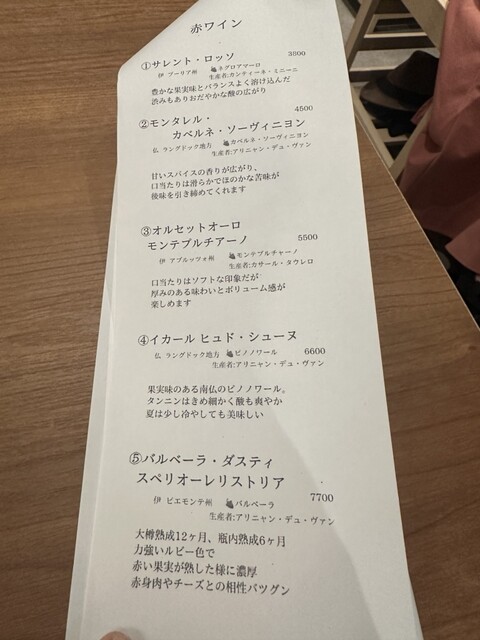 赤ワイン
①サレント・ロッソ 3800
伊 プーリア州 🍇ネグロアマーロ
生産者:カンティーネ・ミニーニ
豊かな果実味とバランスよく溶け込んだ
渋みもありおだやかな酸の広がり
②モンタレル・ 4500
カベルネ・ソーヴィニヨン
仏 ラングドック地方 🍇カベルネ・ソーヴィニヨン
生産者:アリニャン・デュ・ヴァン
甘いスパイスの香りが広がり、
口当たりは滑らかでほのかな苦味が
後味を引き締めてくれます
③オルセットオーロ
モンテプルチアーノ 5500
伊 アブルッツォ州 🍇モンテプルチャーノ
生産者:カサール・タウレロ
口当たりはソフトな印象だが
厚みのある味わいとボリューム感が
楽しめます
④イカール ヒュド・シューヌ
仏 ラングドック地方 🍇ピノノワール 6600
生産者:アリニャン・デュ・ヴァン
果実味のある南仏のピノノワール。
タンニンはきめ細かく酸も爽やか
夏は少し冷やしても美味しい
⑤バルベーラ・ダスティ
スペリオーレリストリア
伊 ピエモンテ州 🍇バルベーラ 7700
生産者:アリニャン・デュ・ヴァン
大樽熟成12ヶ月、瓶内熟成6ヶ月
力強いルビー色で
赤い果実が熟した様に濃厚
赤身肉やチーズとの相性バツグン